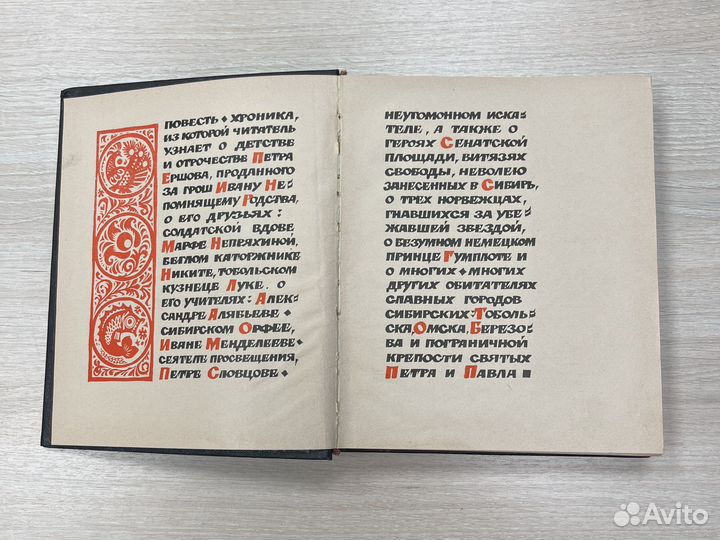 ПОВЕСТЬ • ХРОНИКА,
ИЗ КОТОРОЙ ЧИТАТЕЛЬ
УЗНАЕТ О ДЕТСТВЕ
И ОТРОЧЕСТВЕ ПЕТРА
ЕРШОВА, ПРОДАННОГО
ЗА ГРОШ ИВАНУ НЕ-
ПОМНЯЩЕМУ РОДСТВА,
О ЕГО ДРУЗЬЯХ:
СОЛДАТСКОЙ ВДОВЕ
МАРФЕ НЕПРЯХИНОЙ,
БЕГЛОМ КАТОРЖНИКЕ
НИКИТЕ, ТОБОЛЬСКОМ
КУЗНЕЦЕ ЛУКЕ. О
ЕГО УЧИТЕЛЯХ: АЛЕК-
САНДРЕ АЛЯБЬЕВЕ •
СИБИРСКОМ ОРФЕЕ,
ИВАНЕ МЕНДЕЛЕЕВЕ •
СЕЯТЕЛЕ ПРОСВЕЩЕНИЯ,
ПЕТРЕ СЛОВЦОВЕ •
НЕУГОМОННОМ ИСКА-
ТЕЛЕ, А ТАКЖЕ О
ГЕРОЯХ СЕНАТСКОЙ
ПЛОЩАДИ, ВИТЯЗЯХ
СВОБОДЫ, НЕВОЛЕЮ
ЗАНЕСЕННЫХ В СИБИРЬ,
О ТРЕХ НОРВЕЖЦАХ,
ГНАВШИХСЯ ЗА УБЕ-
ЖАВШЕЙ ЗВЕЗДОЙ,
О БЕЗУМНОМ НЕМЕЦКОМ
ПРИНЦЕ ГУМПЛОТЕ И
О МНОГИХ • МНОГИХ
ДРУГИХ ОБИТАТЕЛЯХ
СЛАВНЫХ ГОРОДОВ
СИБИРСКИХ: ТОБОЛЬ-
СКА, ОМСКА, БЕРЕЗО-
ВА И ПОГРАНИЧНОЙ
КРЕПОСТИ СВЯТЫХ
ПЕТРА И ПАВЛА ■
Avito